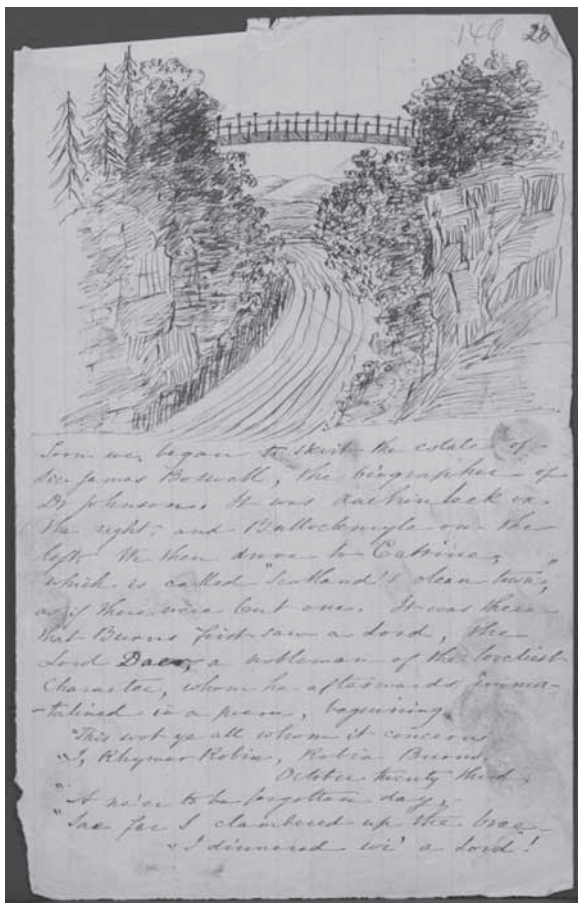 149 28
Soon we began to skirt the estate of
Sir James Boswell, the biographer of
Dr Johnson. It was Auchinleck on
the right, and Ballochmyle on the
left. We then drove to Catrine,
which is called "Scotland's clean town,"
as if there were but one. It was there
that Burns first saw a Lord, the
Lord Daer, a nobleman of the loveliest
character, whom he afterwards immor-
-talized in a poem, beginning,
"This wot ye all whom it concerns
"I, Rhymer Robin, Robin Burns
October twenty third,
"A ne'er to be forgotten day,—
"Sae far I clambered up the brae—
"I dinnered wi' a Lord!